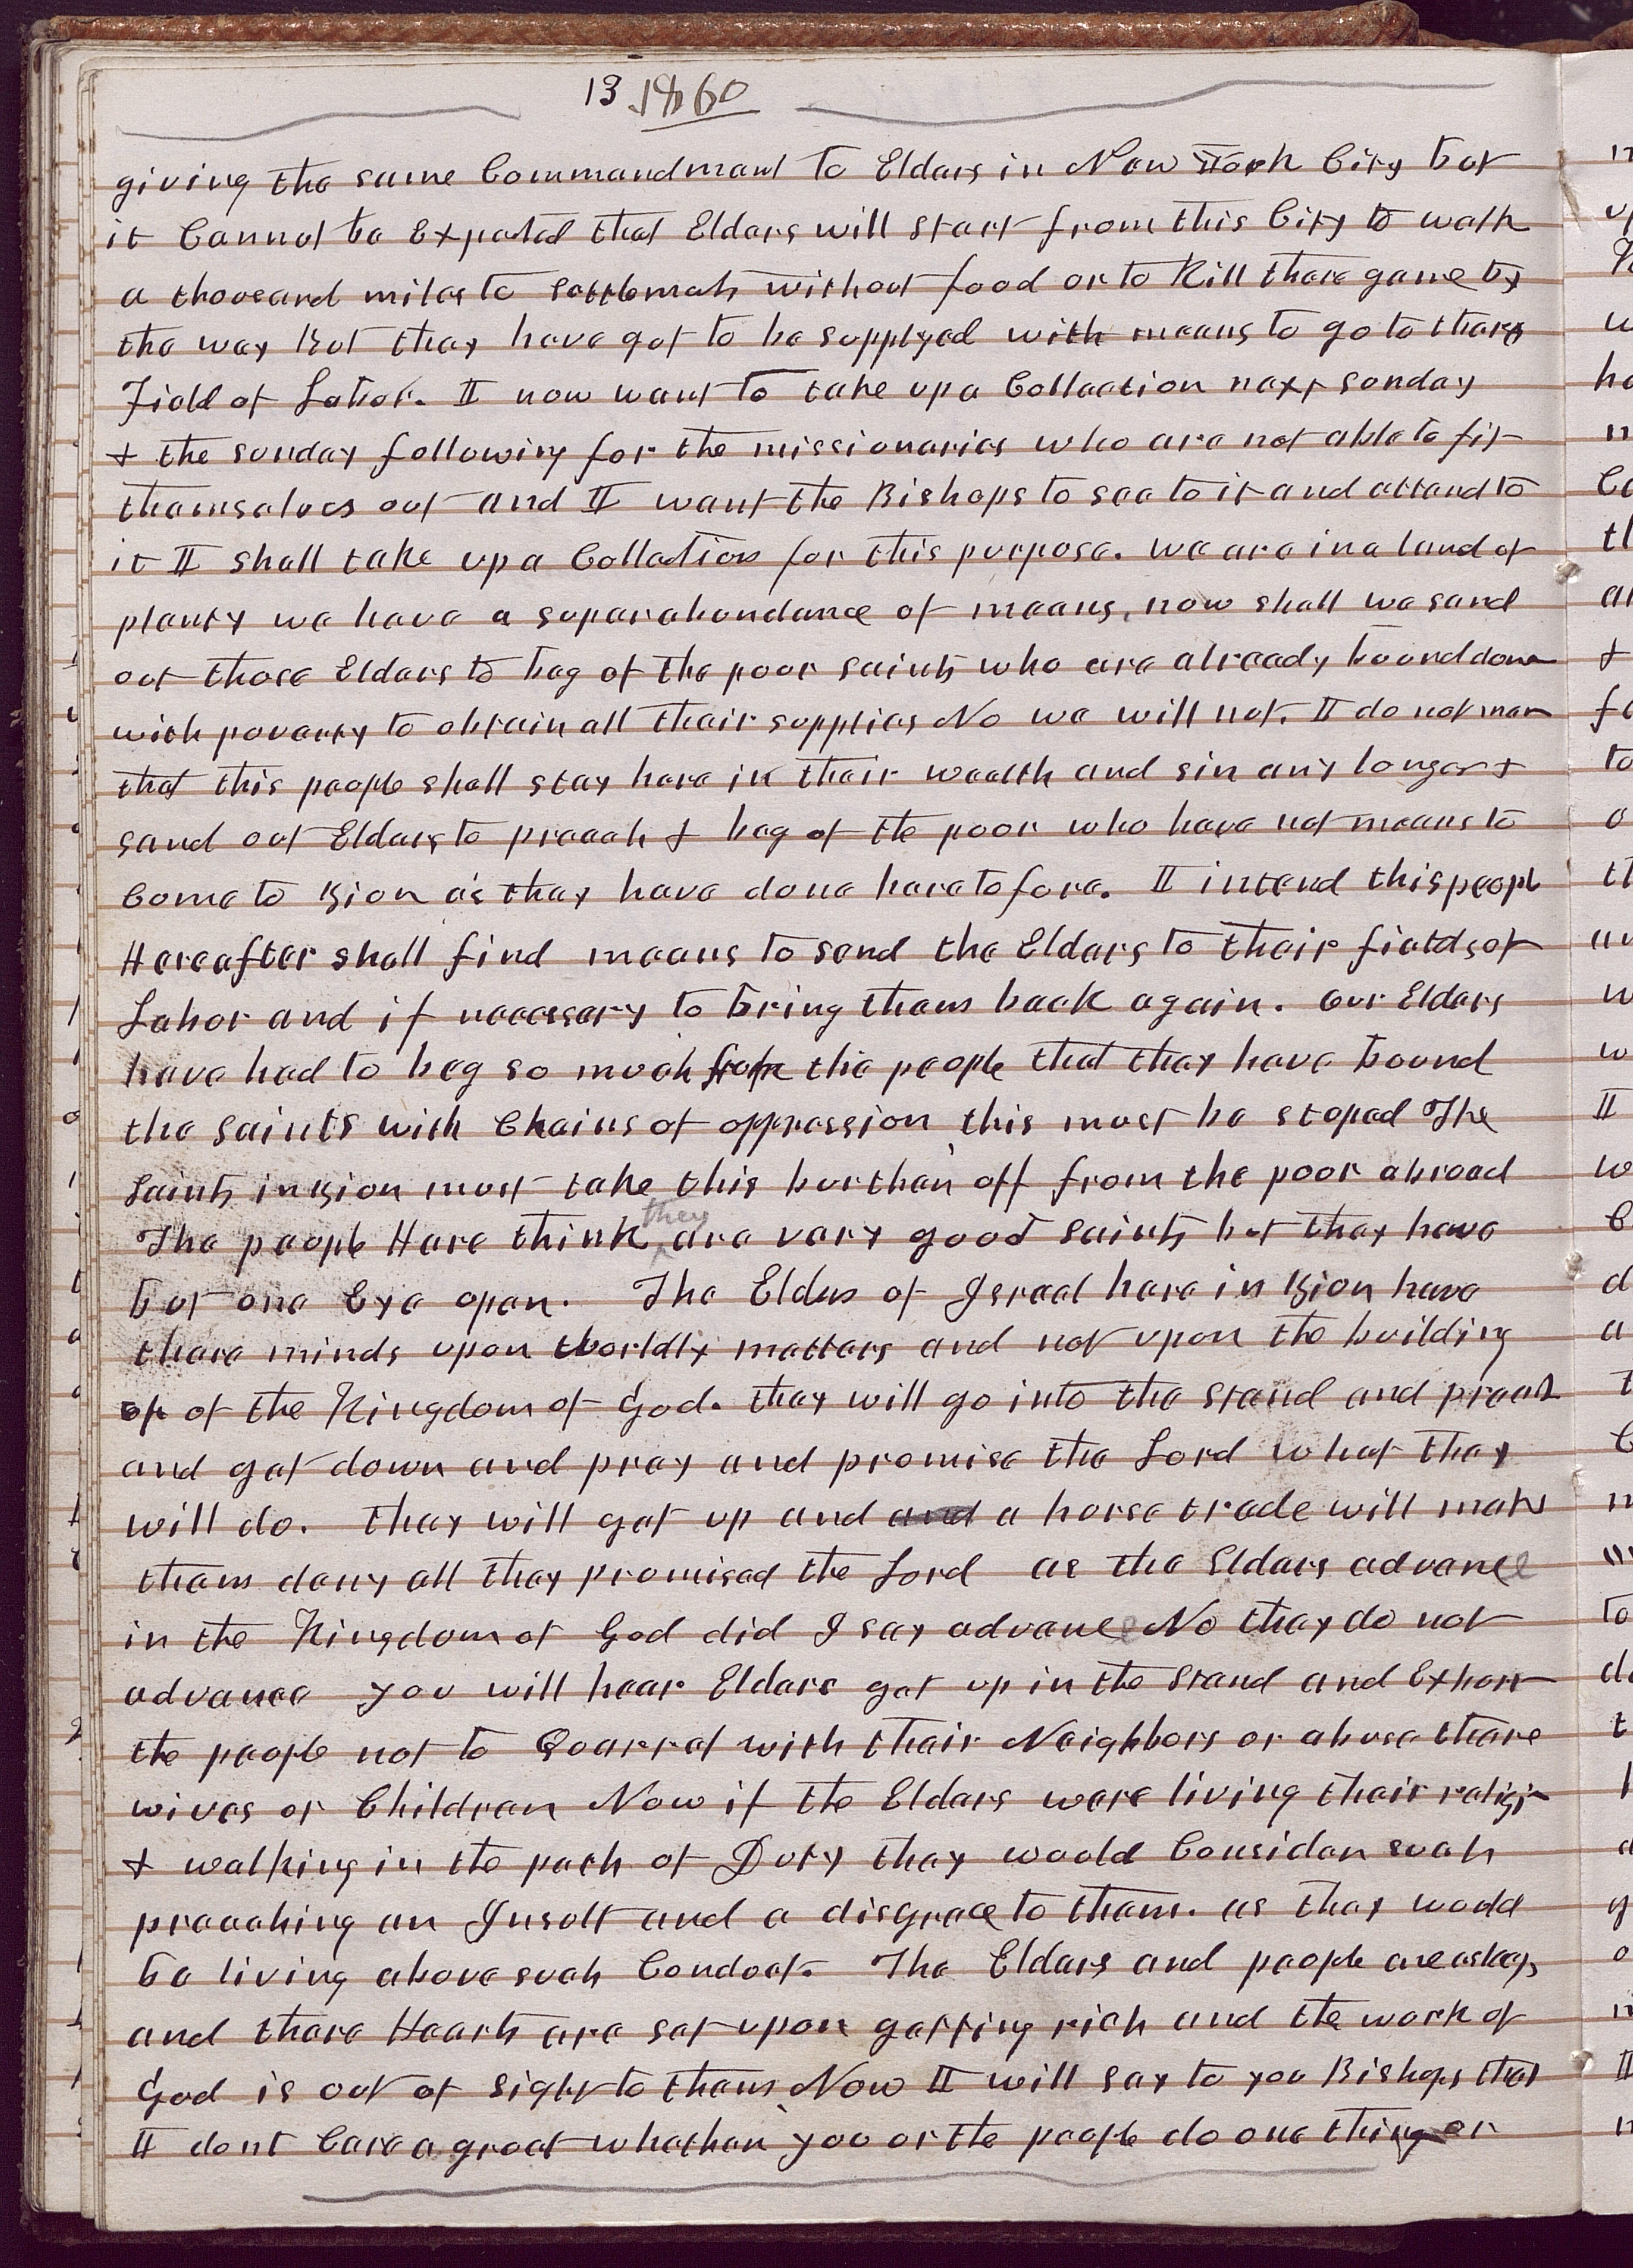 13 1860
giving the same Commandment to Elders in New York City but
it Cannot be Expected that Elders will start from this City to walk
a thousand miles to settlements without food or to Kill there game by
the way But they have got to be supplyed with means to go to there
Field of Labor. I now want to take up a Collection next sunday
& the sunday following for the missionaries who are not able to fit
themselves out and I want the Bishops to see to it and attend to
it I shall take up a Collection for this purpose. we are in a land of
plenty we have a superabundance of means, now shall we send
out those Elders to beg of the poor saints who are already bound down
with poverty to obtain all their supplies No we will not. I do not mean
that this people shall stay here in their wealth and sin any longer &
send out Elders to preach & beg of the poor who have not means to
Come to Zion as they have done heretofore. I intend this peopl
Hereafter shall find means to send the Elders to their fields of
Labor and if neccessary to bring them back again. our Elders
have had to beg so much from the people that they have bound
the saints with Chains of oppression this must be stoped The
Saints in Zion must take this burthen off from the poor abroad
The people Here think they are very good saints but they have
but one Eye open. The Elders of Israel here in Zion have
there minds upon worldly matters and not upon the building
up of the Kingdom of God. they will go into the stand and preach
and get down and pray and promise the Lord what they
will do. they will get up and and a horse trade will make
them deny all they promised the Lord as the Elders advance
in the Kingdom of God did I say advance No they do not
advance you will hear Elders get up in the stand and Exhort
the people not to Quarrel with their Neighbors or abuse there
wives or Children Now if the Elders were living their religion
& walking in the path of Duty they would Consider such
preaching an Insult and a disgrace to them. as they would
be living above such Conduct. The Elders and people are asleep
and there Hearts are set upon getting rich and the work of
God is out of sight to them Now I will say to you Bishops that
I dont Care a groat whether you or the people do one thing or